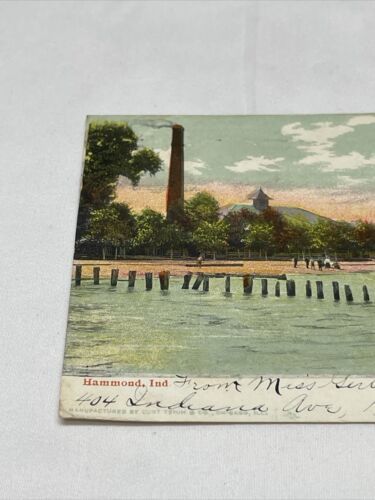 Hammond, Ind. From Miss
404 Indiana Ave,
MANUFACTURED BY CURT TEICH & CO., CHICAGO, ILL.